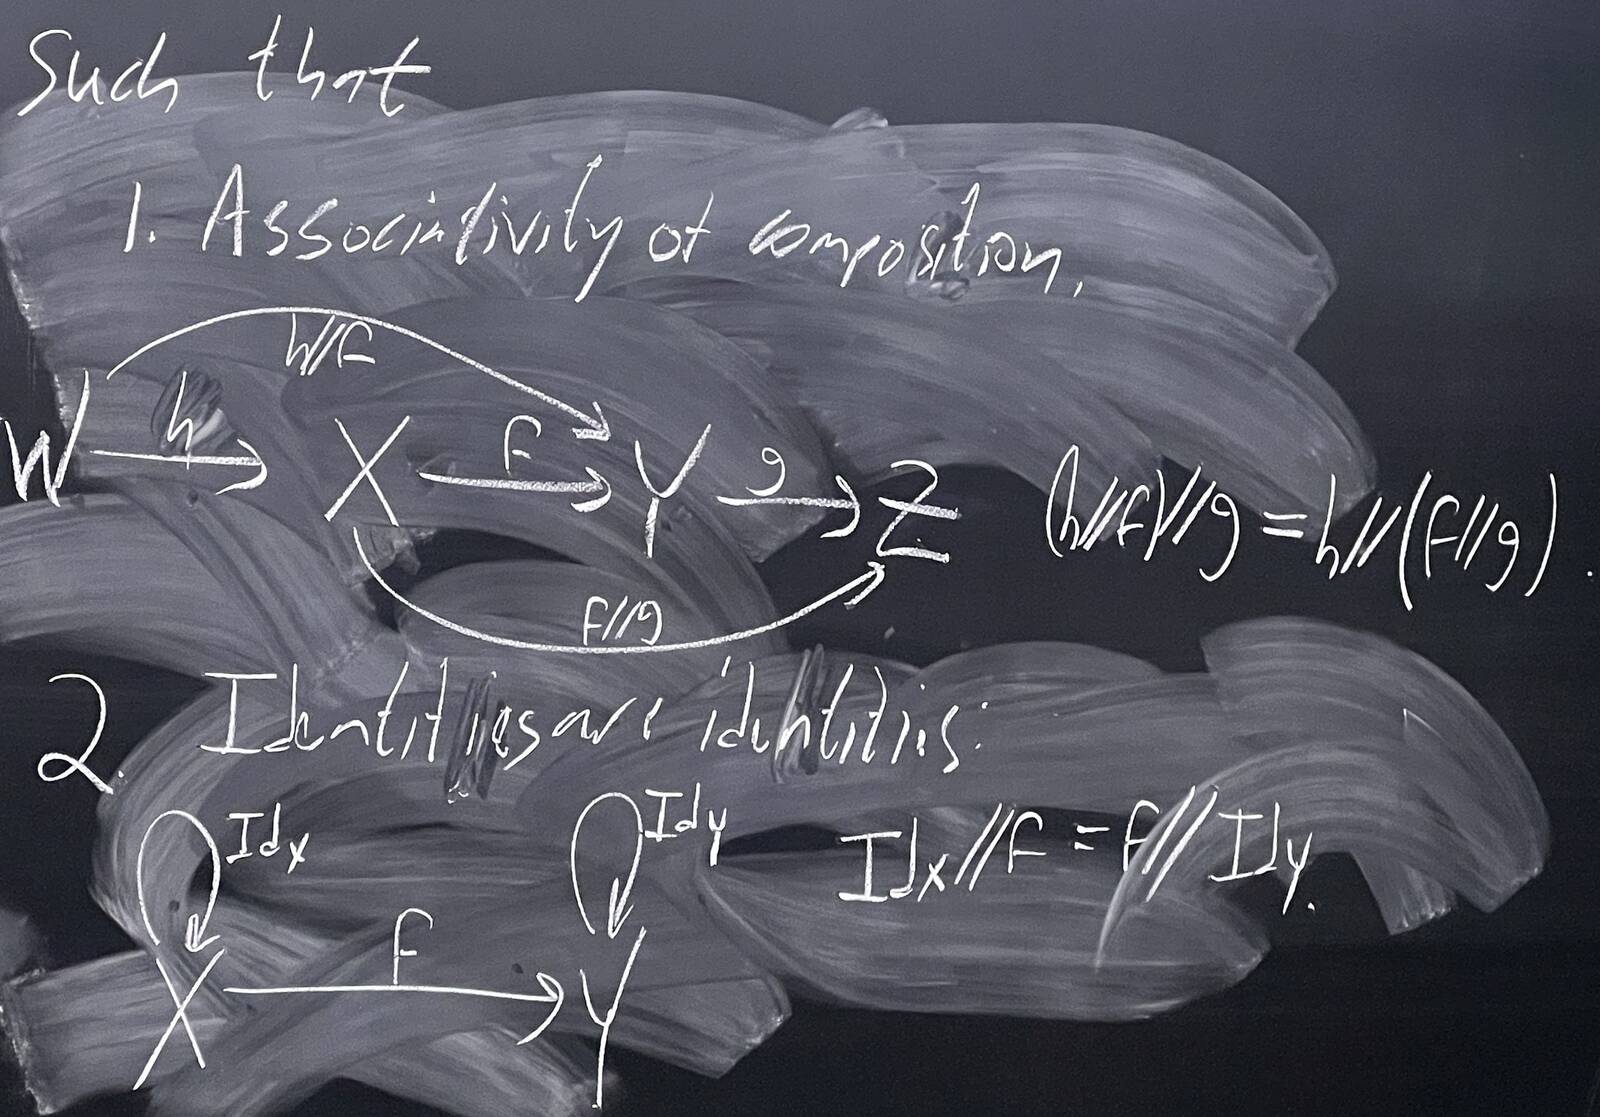 Such that
1. Associativity of composition.
h//f
W h X f Y g Z (h//f)//g = h//(f//g).
f//g
2. Identities are identities:
Idx Idy Idx//f = f//Idy.
X f Y